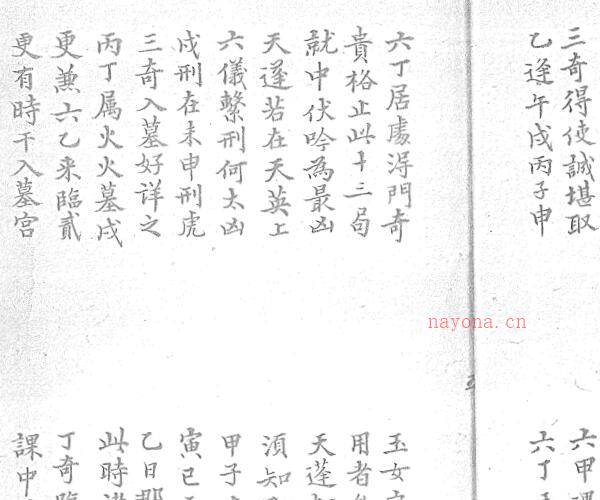 三奇得使誠堪取
乙逢午戌丙子申
六丁居處淂門奇
貴格止此十三局
就中伏吟為最凶
天蓬若在天英上
六儀繫刑何太凶
戍刑在未申刑虎
三奇入墓好詳之
丙丁属火火墓戍
更兼六乙来臨貳
更有時干入墓宫
六甲
六丁
玉女
用者
天蓬
須知
甲子
寅巳
乙日
此時
丁奇
課中
nayona.cn